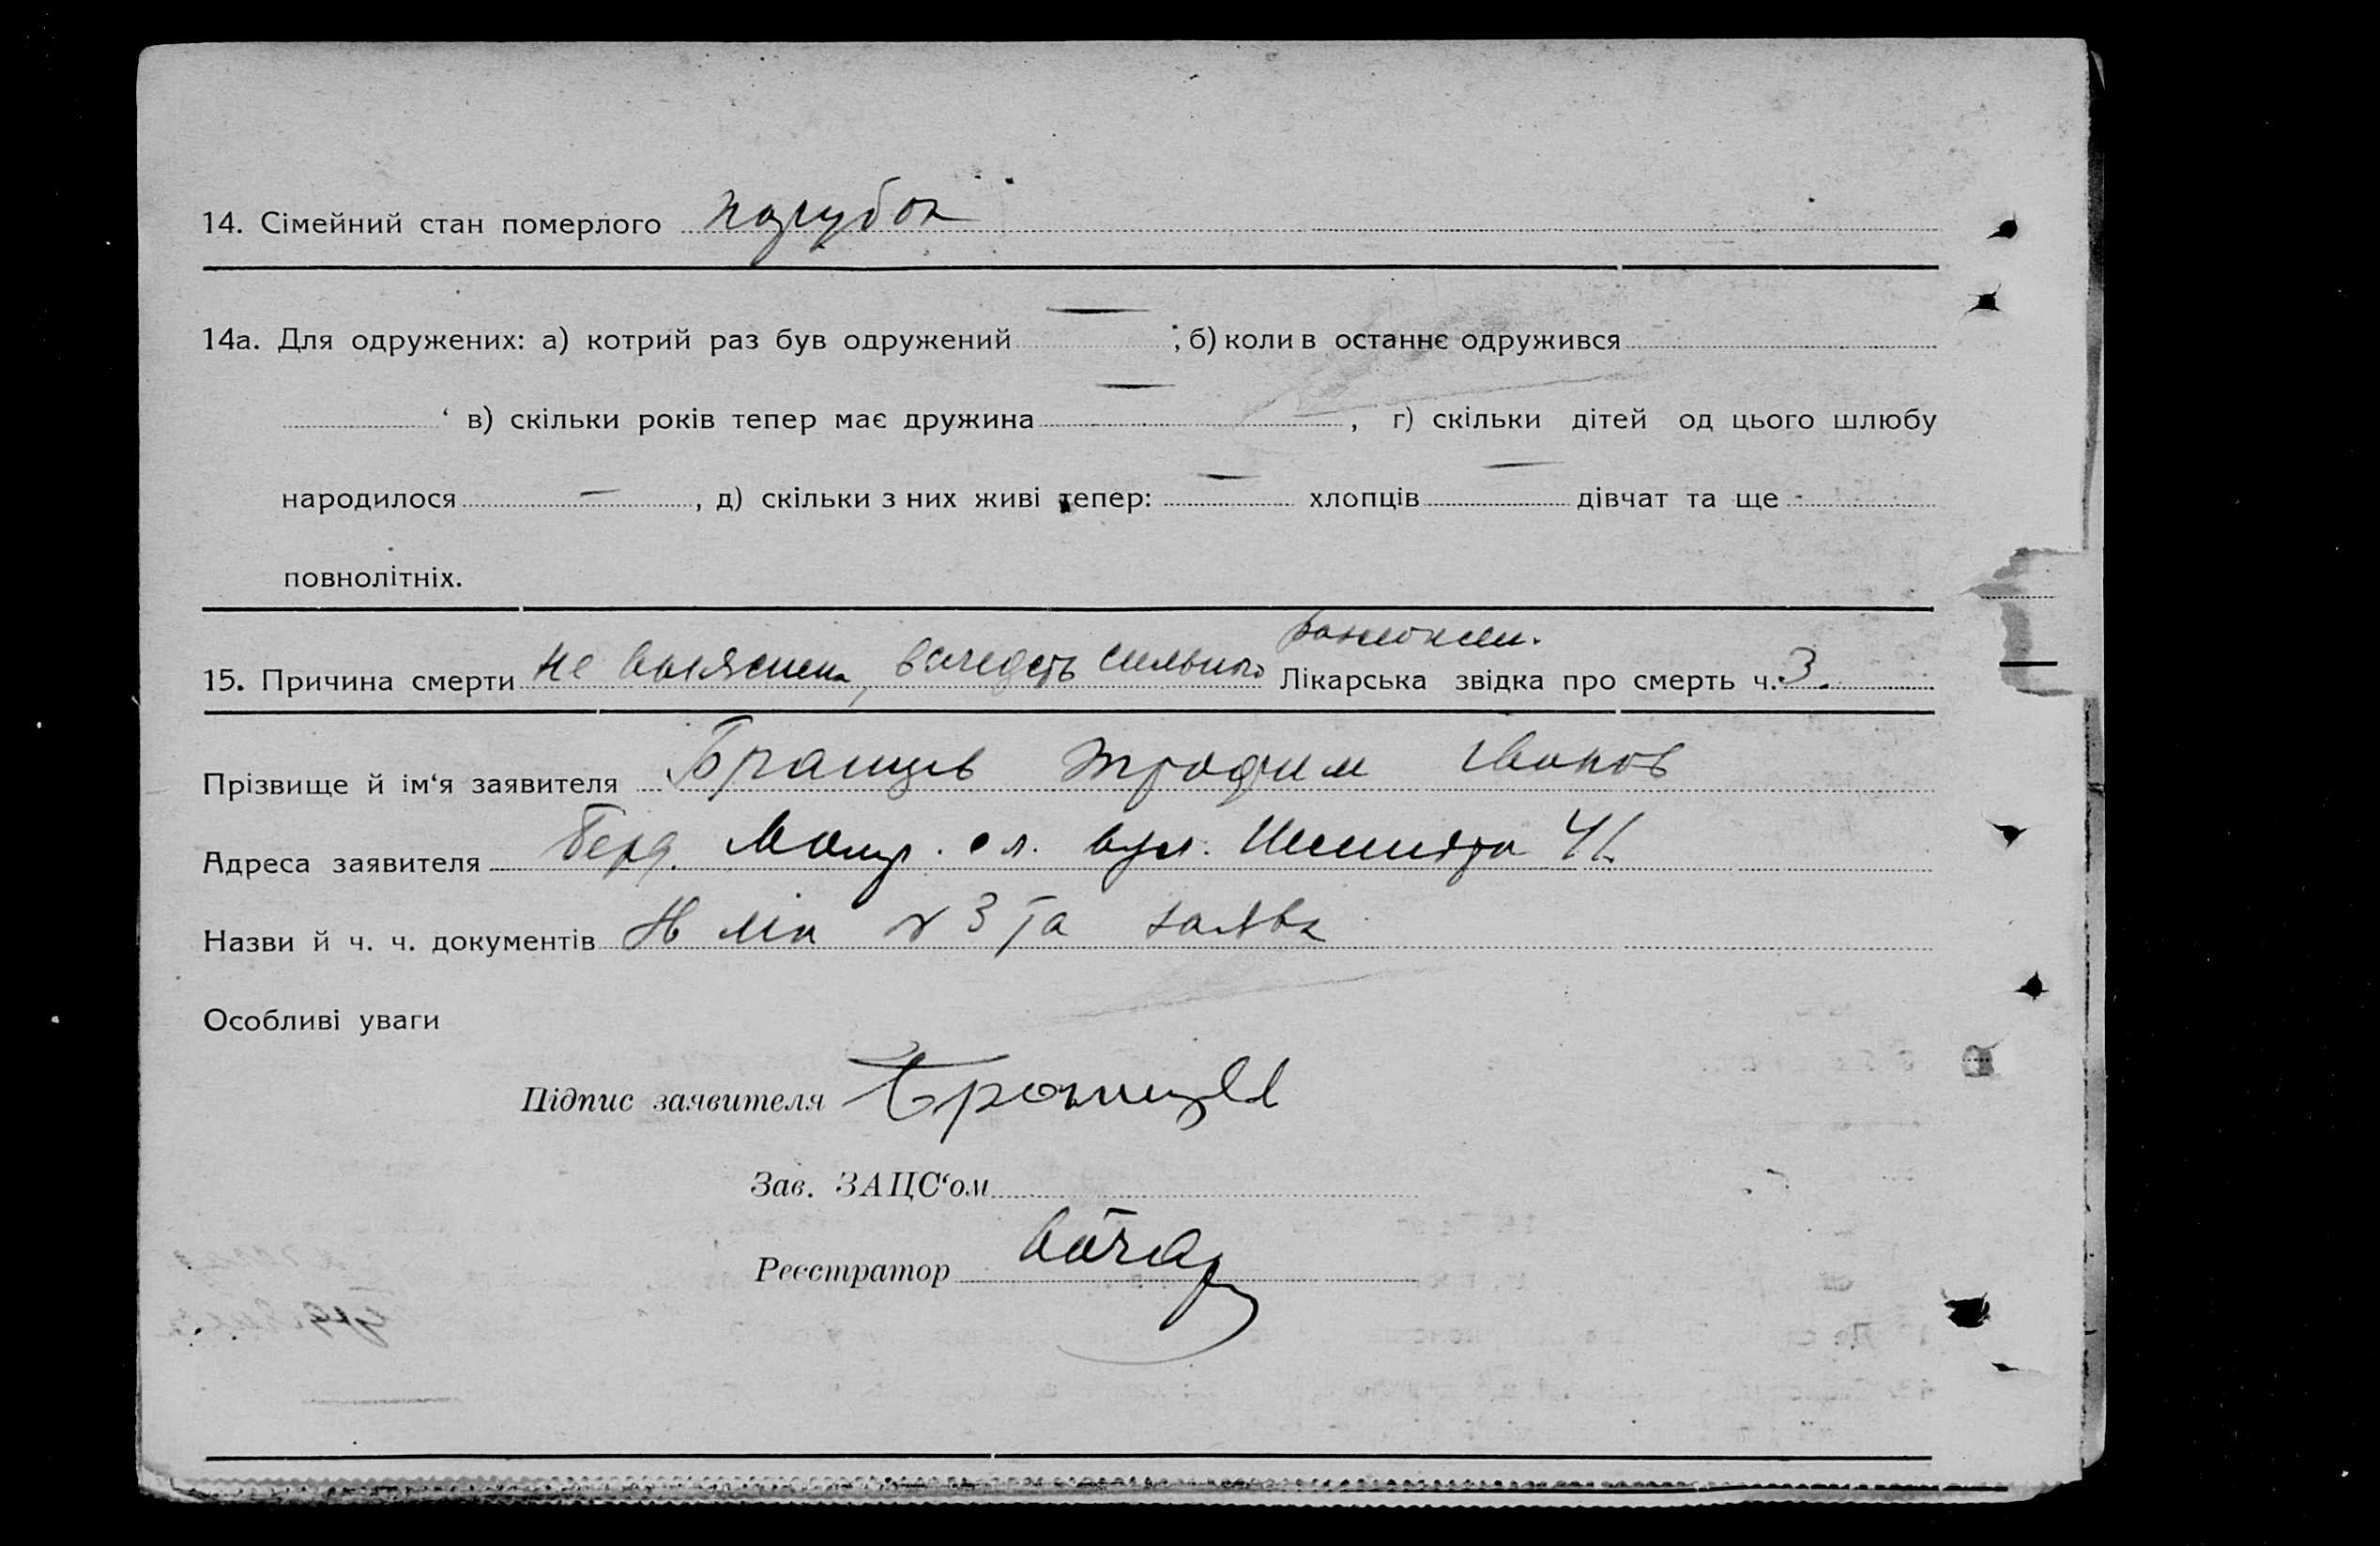 14. Сімейний стан померлого парубок
14а. Для одружених: а) котрий раз був одружений — ; б) коли в останнє одружився
‘ в) скільки років тепер має дружина — , г) скільки дітей од цього шлюбу
народилося — , д) скільки з них живі тепер: — хлопців — дівчат та ще -
повнолітніх.
разложен.
15. Причина смерти не выяснена, вследств сильного Лікарська звідка про смерть ч. 3.
Прізвище й ім‘я заявителя Бранцев Трофим Іванов
Адреса заявителя Берд. вул. Шмидта 41
Назви й ч. ч. документів 3 та заява
Особливі уваги
Підпис заявителя Бранцев
Зав. ЗАЦС‘ом
Реєстратор